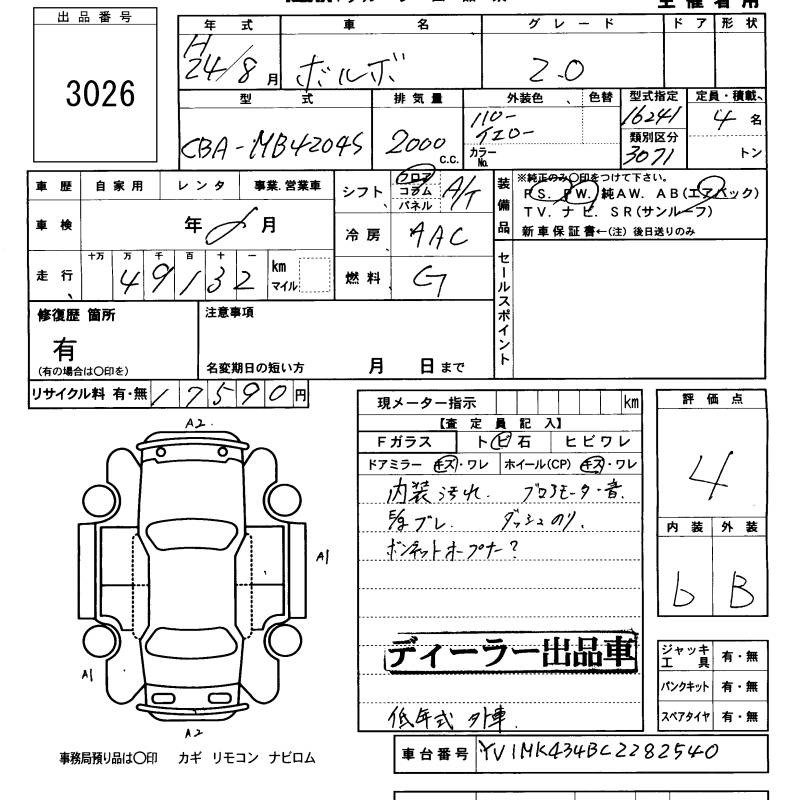 出品番号
3026
年式 車名 グレード ドア 形状
H
24/8月 ボルボ 2.0
型式 排気量 外装色 色替 型式指定 定員・積載
CBA-MB4204S 2000 c.c. ハロー イエロー 16241 4名
カラーNo. 類別区分 3071 トン
車歴 自家用 レンタ 事業.営業車 シフト フロア コラム パネル A/T
装備品 ※純正のみ〇印をつけて下さい。
PS. PW. 純AW. AB(エアバック)
TV. ナビ. SR(サンルーフ)
新車保証書←(注)後日送りのみ
車検 年 月 冷房 AAC
走行 十万 万 千 百 十 一
49132 km マイル 燃料 G
セールスポイント
修復歴 箇所
有
(有の場合は〇印を)
注意事項
名変期日の短い方 月 日まで
リサイクル料 有・無 17590円
現メーター指示 km
【査定員記入】
Fガラス ト ビ 石 ヒビワレ
ドアミラー キズ・ワレ ホイール(CP) キズ・ワレ
内装汚れ. ブロアモーター音.
ブレ. ダッシュのり.
ボンネットオープナー?
ディーラー出品車
低年式 外車.
評価点
4
内装 外装
b B
ジャッキ工具 有・無
パンクキット 有・無
スペアタイヤ 有・無
A2.
A1
A1
A2
事務局預り品は〇印 カギ リモコン ナビロム
車台番号 YV1MK434BC2282540